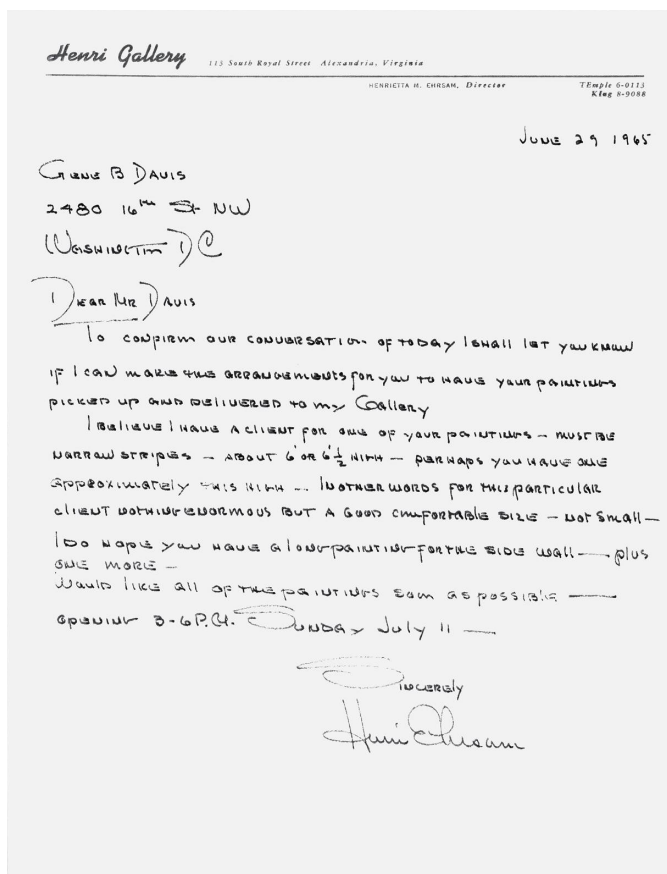 Henri Gallery 113 South Royal Street Alexandria, Virginia
HENRIETTA M. EHRSAM, Director
TEmple 6-0113
KIng 8-9088
JUNE 29 1965
GENE B DAVIS
2480 16th St NW
WASHINGTON DC
DEAR MR DAVIS
TO CONFIRM OUR CONVERSATION OF TODAY I SHALL LET YOU KNOW
IF I CAN MAKE THE ARRANGEMENTS FOR YOU TO HAVE YOUR PAINTINGS
PICKED UP AND DELIVERED TO MY GALLERY
I BELIEVE I HAVE A CLIENT FOR ONE OF YOUR PAINTINGS – MUST BE
NARROW STRIPES – ABOUT 6' OR 6'½ HIGH – PERHAPS YOU HAVE ONE
APPROXIMATELY THIS HIGH – IN OTHER WORDS FOR THIS PARTICULAR
CLIENT NOTHING ENORMOUS BUT A GOOD COMFORTABLE SIZE – NOT SMALL –
I DO HOPE YOU HAVE A LONG PAINTING FOR THE SIDE WALL — PLUS
ONE MORE –
WOULD LIKE ALL OF THE PAINTINGS SOON AS POSSIBLE —
OPENING 3-6 P.M. SUNDAY JULY 11 —
SINCERELY
Henri Ehrsam